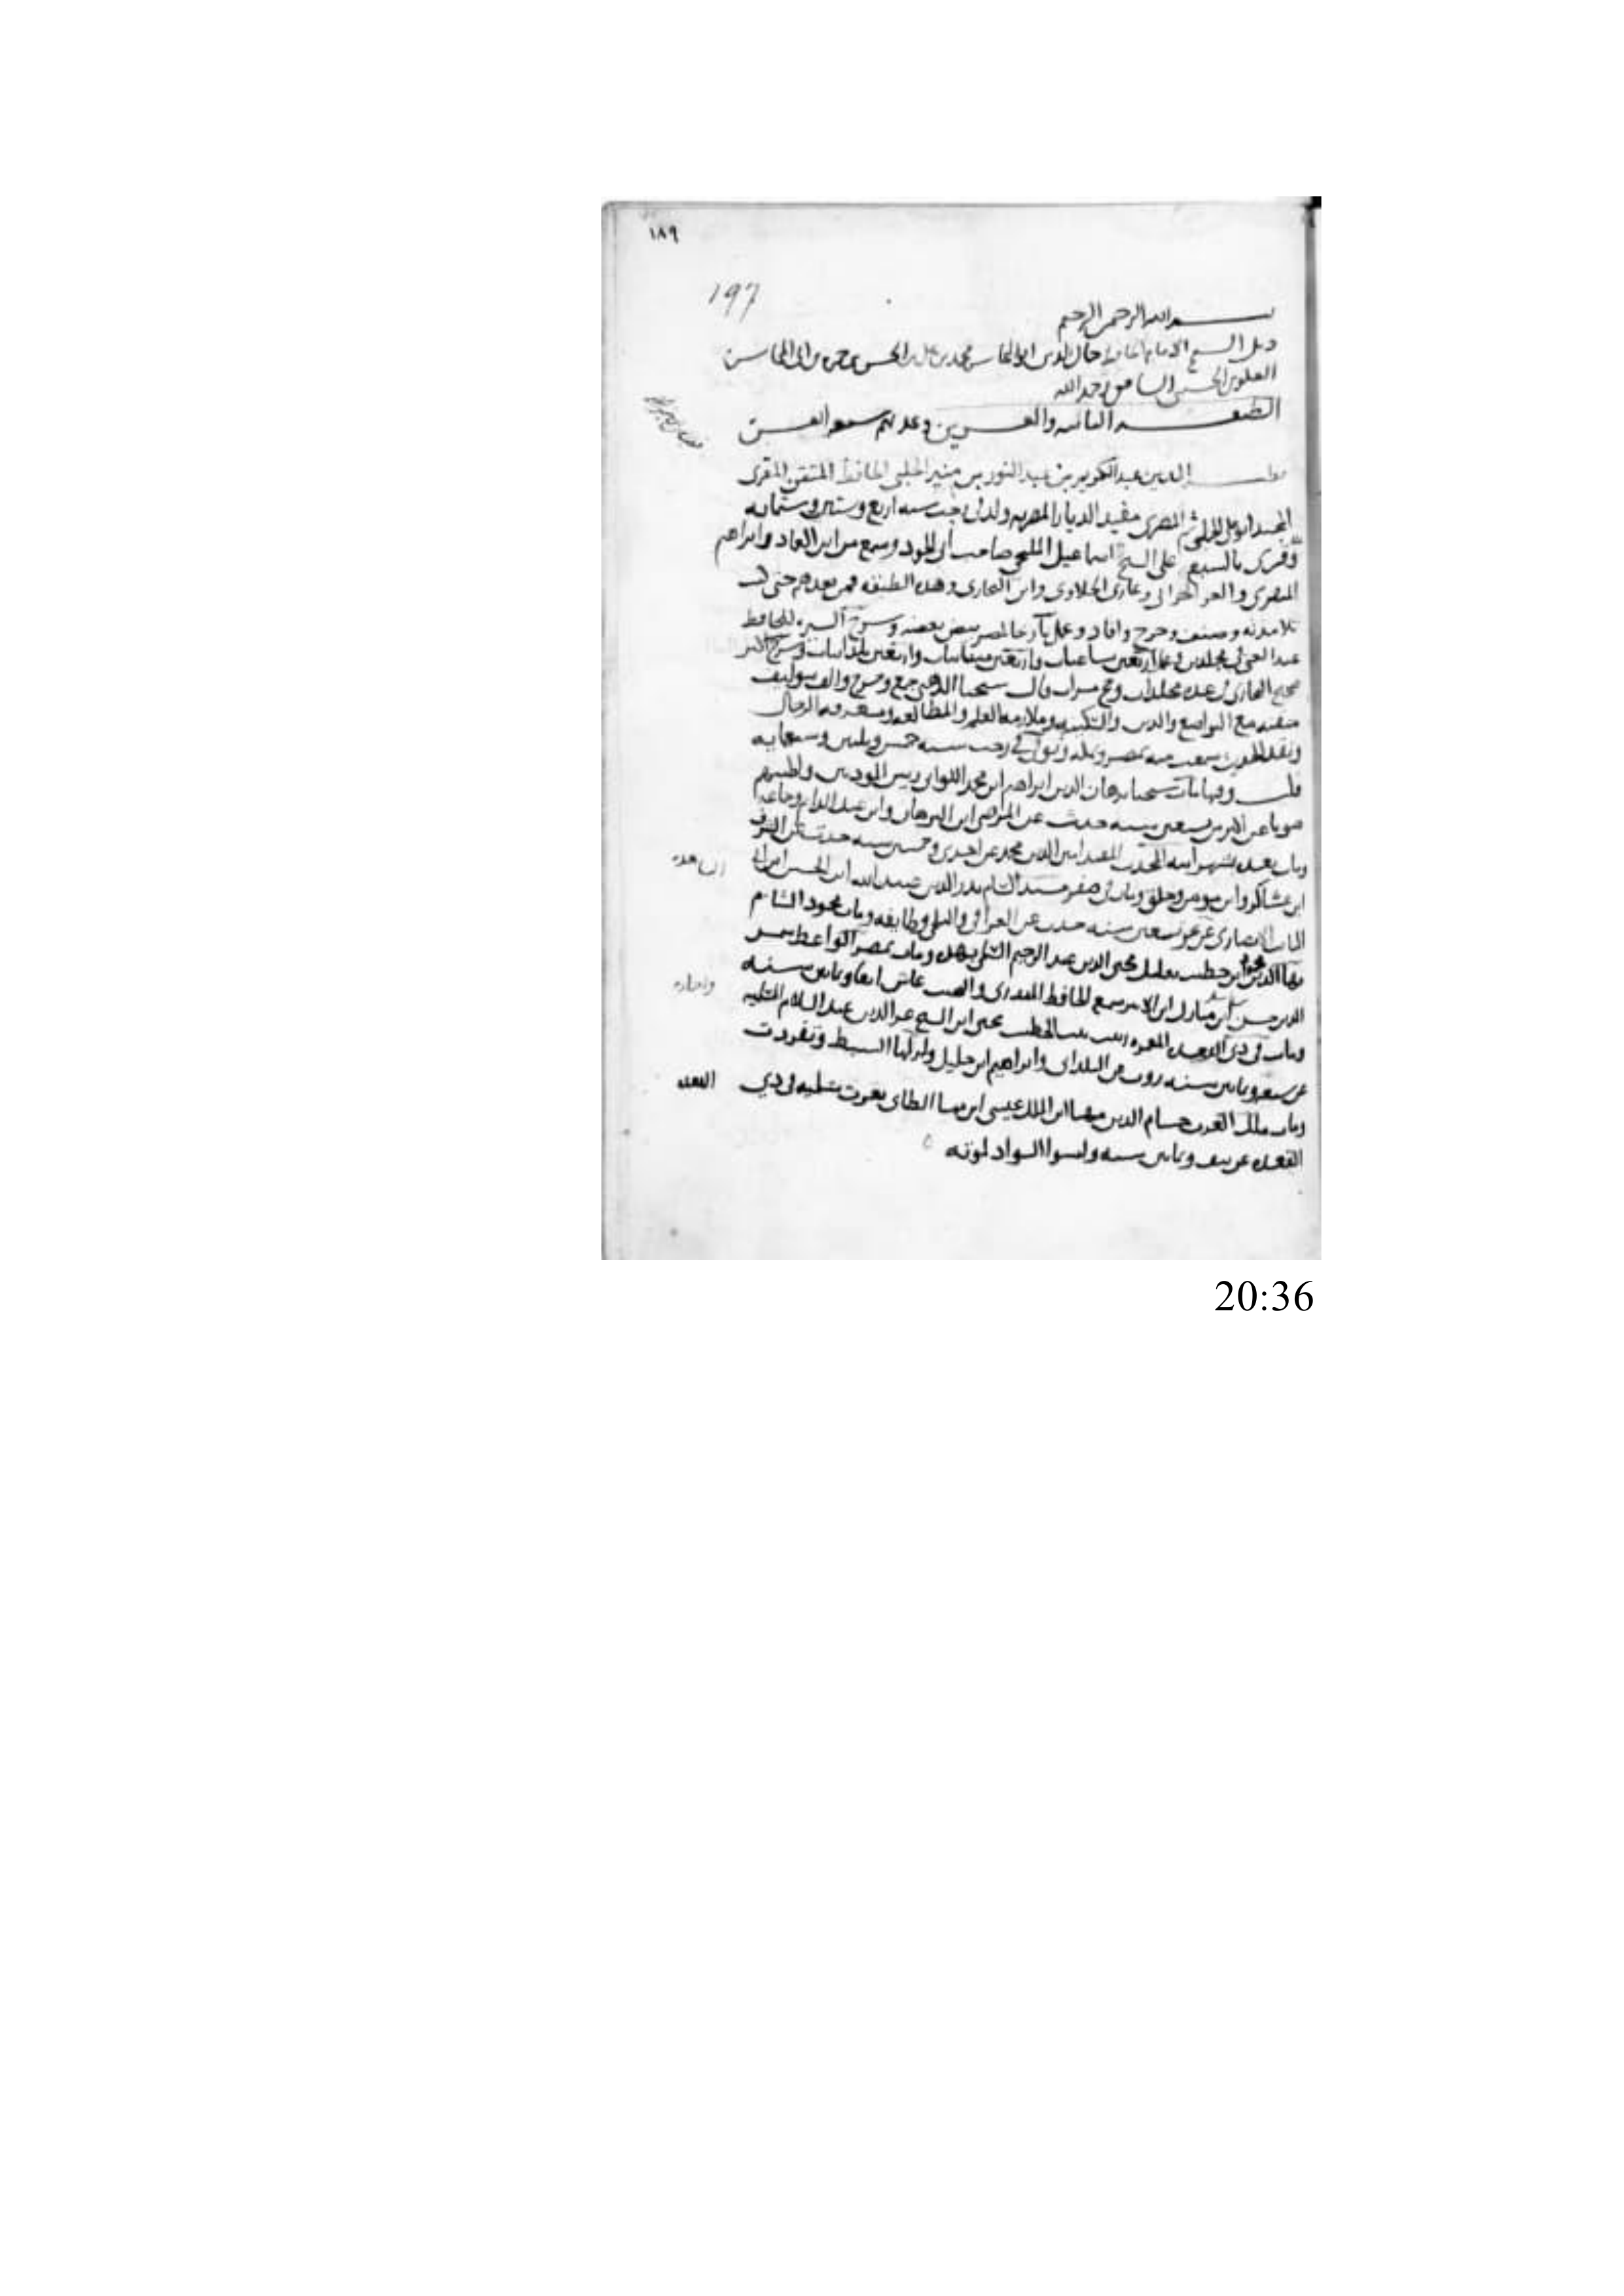 ١٨٩
197
بسم الله الرحمن الرحيم
ذيل الشيخ الامام الحافظ جمال الدين ابو المحاسن محمد بن علي بن الحسن بن حمزه بن ابي المحاسن
العلوي الحسيني الشافعي رحمه الله
الطبقه الثانيه والعشرين وعدتهم سبعه انفس
قطب الدين عبد الكريم بن عبد النور بن منير الحلبي الحافظ المتقن المقرى
المجيد ابو علي الحلبي ثم المصرى مفيد الديار المصريه ولد في رجب سنه اربع وستين وستمايه
وقرى بالسبع على الشيخ اسماعيل المليجي صاحب ابي الجود وسمع من ابن العماد وابراهيم
المنقرى والعز الحرانى وغازى الحلاوى وابن البخارى وهذه الطبقه فمن بعدهم حتى كتب عن
تلامذته وصنف وخرج وافاد وعمل تاريخا لمصر بيض بعضه وشرح السيره للحافظ
عبد الغني في مجلدين وعمل اربعين تساعيات واربعين متباينات واربعين بلدانيات وشرح اكثر
صحيح البخارى في عده مجلدات وحج مرات قال شيخنا الذهبي جمع وخرج والف تواليف
متقنه مع التواضع والدين والسكينه وملازمه العلم والمطالعه ومعرفه الرجال
ونقد الحديث سمعت منه بمصر وبمكه وتوفى في رجب سنه خمس وثلثين وسبعمايه
قلت وفيها مات شيخنا برهان الدين ابراهيم ابن محمد الواني رييس الموذنين واطيبهم
صوتا عن اكثر من تسعين سنه حدث عن الرضي ابن البرهان وابن عبد الدايم وجماعه
ومات بعده بشهر ابنه المحدث المفيد امين الدين محمد عن احدى وخمسين سنه حدثنا عن الشرف
ابن عساكر وابن مومن وخلق ومات في صفر مسند الشام بدر الدين عبد الله ابن الحسين ابن ابي
التايب الانصارى عن نحو تسعين سنه حدث عن العراقي والبلخي وطايفه ومات محمود الشام
بها الدين محمود ابن خطيب بعلبك محيى الدين عبد الرحيم السلمى بها ومات بمصر الواعظ شمس
الدين حسين ابن اسد ابن مبارك ابن الاثير سمع الحافظ المنذرى والنجيب عاش اثنتا وثمانين سنه
وماتت في ذي القعده المعمره زينب بنت الخطيب يحيى ابن الشيخ عز الدين عبد السلام السلميه
عن سبع وثمانين سنه روت عن البلدانى وابراهيم ابن خليل ولها اجازه السبط وتفردت
ومات ملك العرب حسام الدين مهنا ابن الملك عيسى ابن مهنا الطاى بقرب سلميه في ذي القعده
القعده عن نيف وثمانين سنه ولبسوا السواد لموته ه
20:36